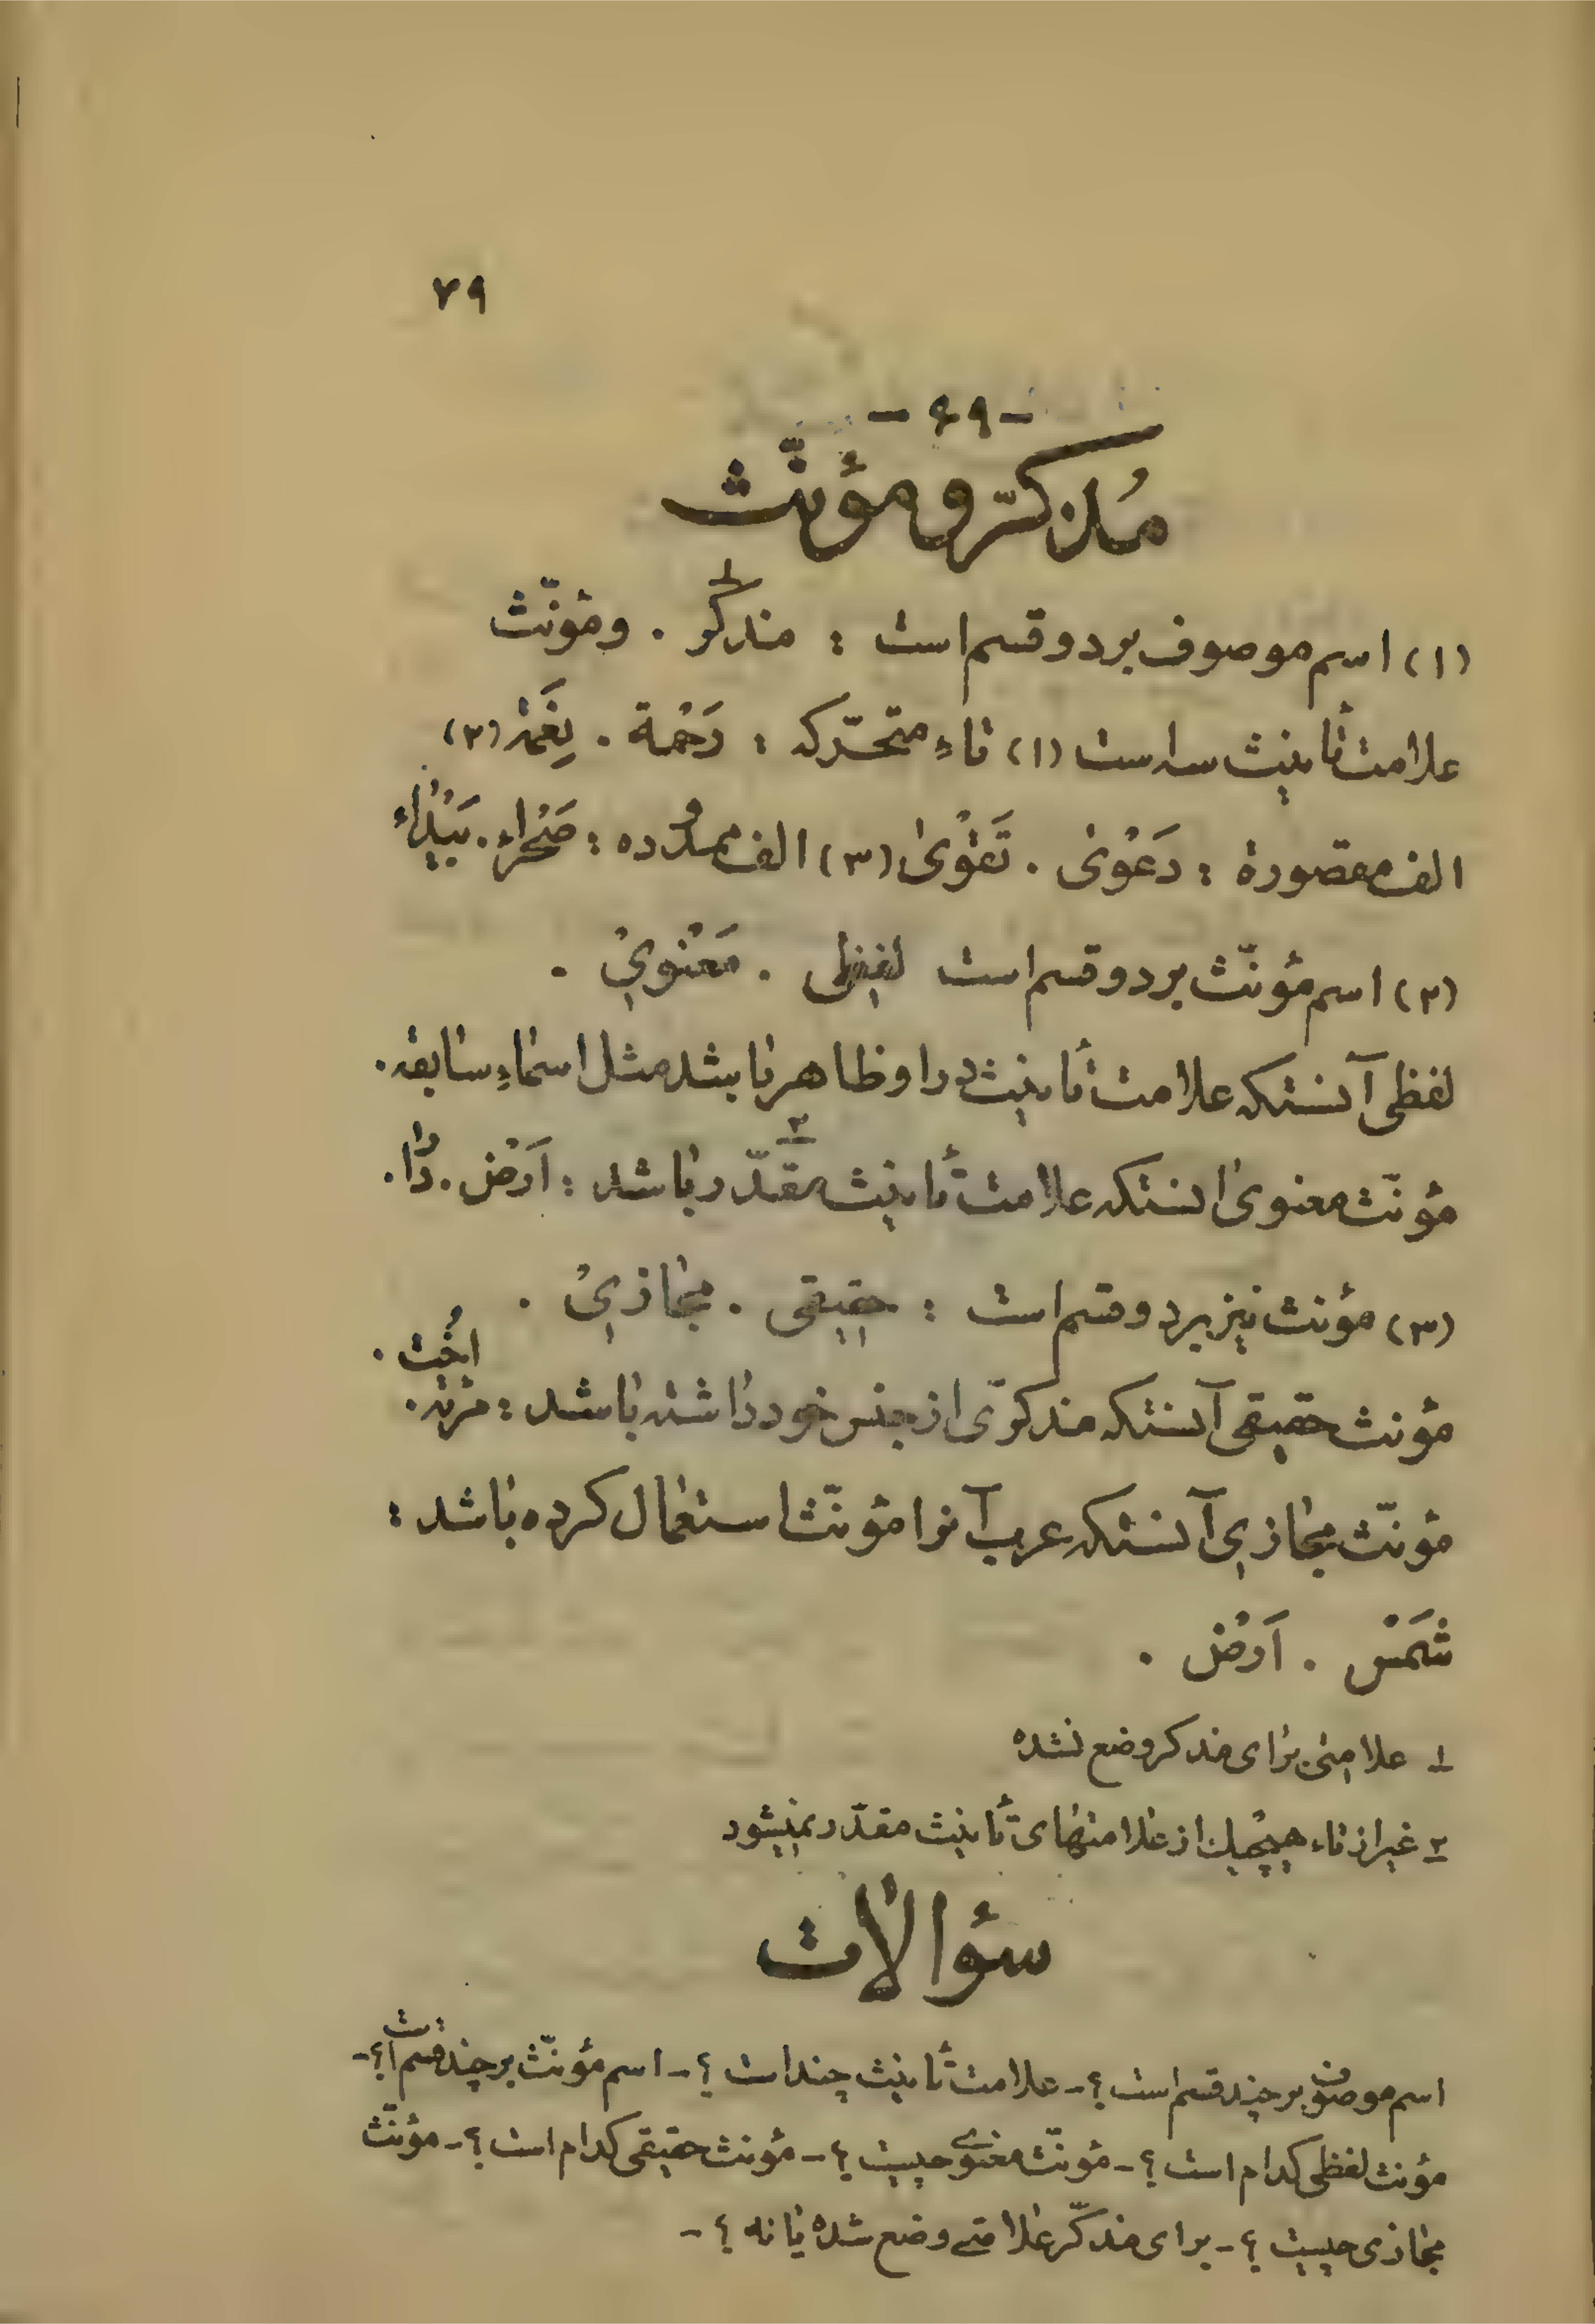 ۷۹
- ۴۹ -
مُذكّر و مؤنّث
(۱) اسم موصوف بر دو قسم است : مذكّر . ومؤنّث
علامت تأنيث سه است (۱) تاءِ متحرّكه : رَحْمة . نِعْمَة (۲)
الف مقصورة : دَعْوىٰ . تَقْوىٰ (۳) الف ممدوده : صَحْراء . بَيْدٰاء
(۲) اسم مؤنّث بر دو قسم است لفظى . مَعْنوىْ .
لفظى آنستكه علامت تأنيث در او ظاهر باشد مثل اسماءِ سابقه .
مؤنّث معنوى انستكه علامت تأنيث مقدّر ۲ باشد : اَرْض . دٰار .
(۳) مؤنث نيز بر دو قسم است : حقيقى . مجازىْ .
مؤنث حقيقى آنستكه مذكّرى از جنس خود داشته باشد : مَرْئة . اُخْت .
مؤنّث مجازى آنستكه عرب آنرا مؤنّث استعمال كرده باشد :
شَمْس . اَرْض .
۱ علامتى براى مذكر وضع نشده
۲ غير از تاء هيچيك از علامتهاى تأنيث مقدّر نميشود
سؤالات
اسم موصوف بر چند قسم است ؟ - علامت تأنيث چند است ؟ - اسم مؤنّث بر چند قسم است ؟ -
مؤنث لفظى كدام است ؟ - مؤنّث معنوى چيست ؟ - مؤنث حقيقى كدام است ؟ - مؤنّث
مجازى چيست ؟ - براى مذكّر علامتى وضع شده يا نه ؟ -